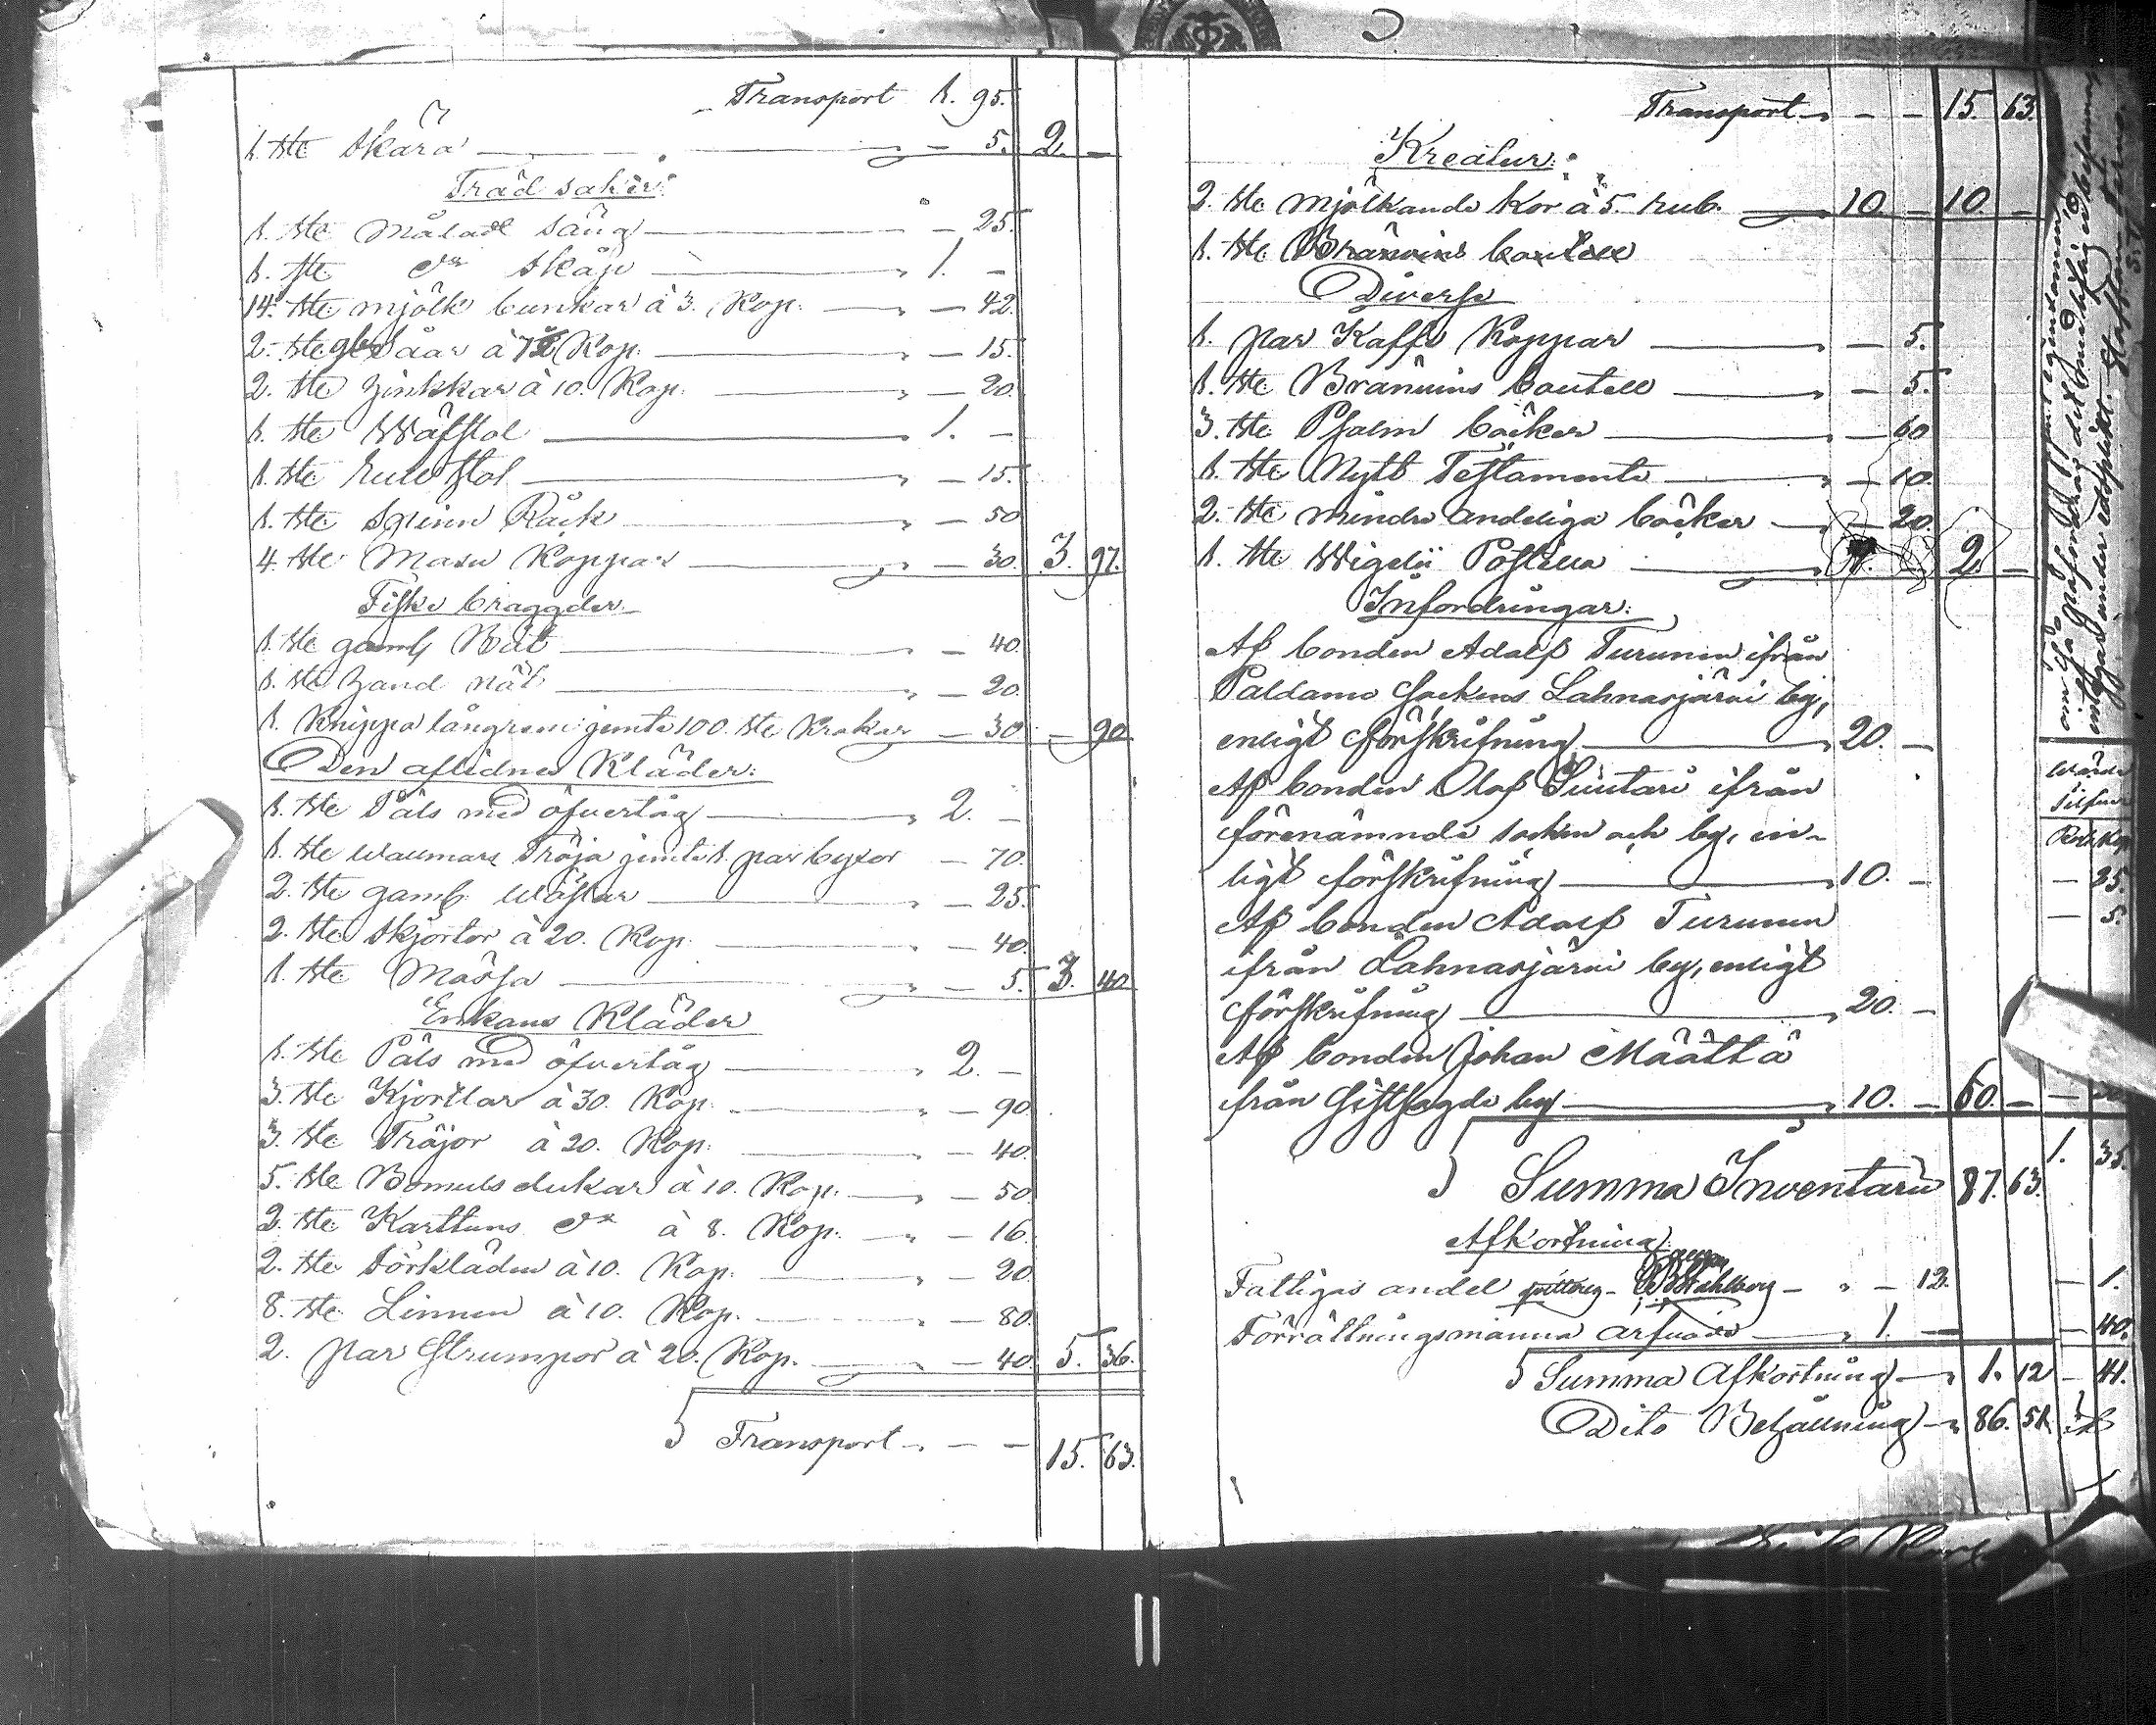 Transport 1. 95.
1. st: Skära — 5. 2. —
Träd saker:
1. st: Målad Säng — 25.
1. st: do Skåp 1. —
14. st: mjölk bunkar à 3. Kop: — 42.
2. st: Såar à Kop. — 15.
2. st: Zinkkar à 10. Kop: — 20.
1. st: Wäfstol 1. —
1. st: Stol — 15.
1. st: Spinn Råck — 50
4. st: Masu Koppar — 30. 3. 97.
Fiske braggder
1. st: gamb Båt — 40.
1. st: nät — 20.
1. Knippa långrem jemte 100. st: Krokar — 30. — 90
Den aflidnes Kläder:
1. st: Päls med öfvertåg 2. —
1. st: wallmars Tröja jemte 1. par byxor — 70.
2. st: gamb. Wästar — 25.
2. st: Skjortor à 20. Kop. — 40.
1. st: Mössa — 5. 3. 40.
Enkans Kläder
1. st: Päls med öfvertåg 2. —
3. st: Kjortlar à 30. Kop. — 90.
3. st: Tröjor à 20. Kop: — 40.
5. st: Bomuls dukar à 10. Kop. — 50.
2. st: Karttuns do à 8. Kop. — 16.
2. st: Förkläden à 10. Kop. — 20.
8. st: Linnen à 10. Kop. — 80.
2. par Strumpor à 20. Kop. — 40. 5. 36.
Transport — — 15. 63.
Transport — — 15. 63.
Kreatur:
2. st: mjölkande kor à 5. rub. 10. — 10. —
1. st: Bränvins boutell
Diverse
1. par Kaffe Koppar — 5.
1. st: Bränvins boutell — 5.
3. st: Psalm böcker — 60
1. st: Nytt Testamente — 10.
2. st: mindre andeliga böcker — 20.
1. st: Wigelii Postilla 2. —
Infordringar:
Af bonden Adolf Turunen ifrån
Paldamo Sockens Lahnasjärvi by,
enligt förskrifning 20. —
Af bonden Olof Suutari ifrån
förenämnde socken och by, en-
ligt förskrifning 10. —
Af bonden Adolf Turunen
ifrån Lahnasjärvi by, enligt
förskrifning 20. —
Af bonden Johan Määttä
från by 10. — 60. —
Summa Inventarii 87. 63.
Afkortning:
Fattigas andel — 12.
Förrättningsmanna arfvode 1. —
Summa Afkortning 1. 12
Dito Behållning 86. 51.
Rub. Kop.
— 25
— 5.
1. 35.
— 1.
— 40.
— 41.